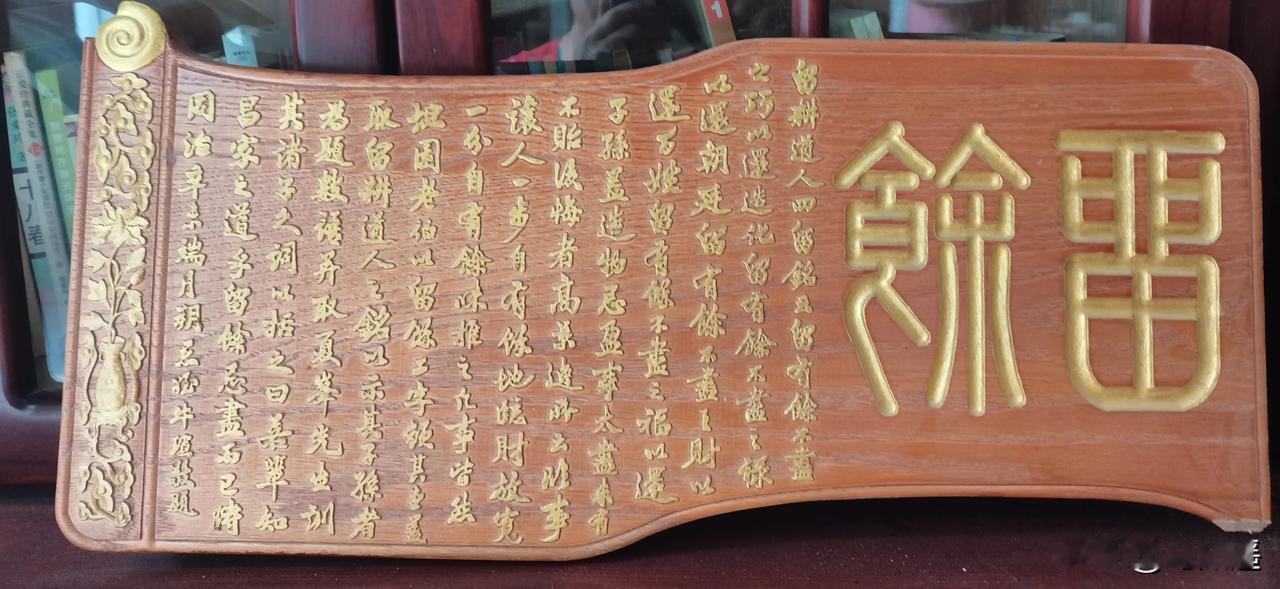 留餘
留耕道人四留銘云留有餘不盡
之巧以還造化留有餘不盡之祿
以還朝廷留有餘不盡之財以
還百姓留有餘不盡之福以還
子孫蓋造物忌盈事太盡未有
不貽後悔者高景逸所云臨事
讓人一步自有餘地臨財放寬
一分自有餘味推之凡事皆然
坦園老伯以留餘二字顏其堂蓋
取留耕道人之銘以示其子孫者
為題數語并取夏峯先生訓
其諸子之詞以括之曰若輩知
昌家之道乎留餘忌盡而已時
同治辛未端月朔愚姪牛瑄敬題
十八春
1